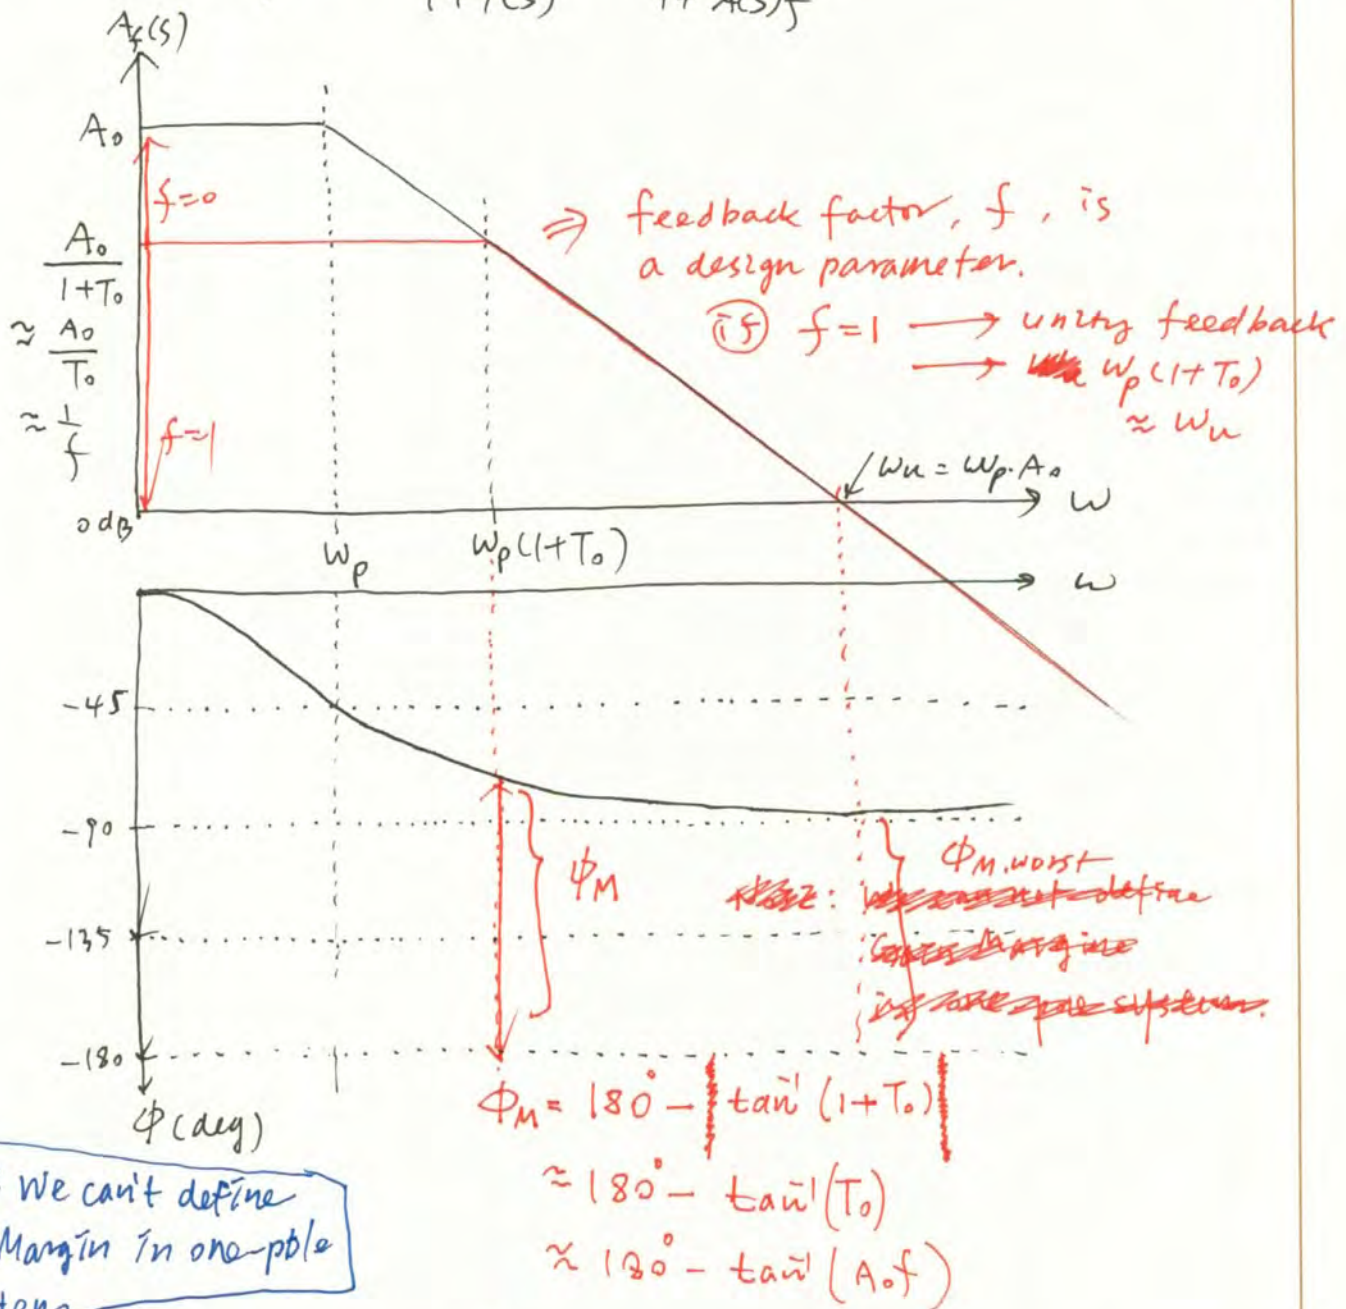 A_f(s)
A₀
f=0
A₀
1+T₀
≈ A₀
T₀
≈ 1
f
f=1
0dB
⇒ feedback factor, f, is
a design parameter.
if f=1 → unity feedback
→ ω_p(1+T₀)
≈ ω_u
ω_u = ω_p·A₀
ω
ω_p
ω_p(1+T₀)
ω
-45
-90
-135
-180
ϕ(deg)
ϕ_M
ϕ_M,worst
ϕ_M = 180° - tan⁻¹(1+T₀)
≈ 180° - tan⁻¹(T₀)
≈ 180° - tan⁻¹(A₀f)
We can't define
Margin in one-pole